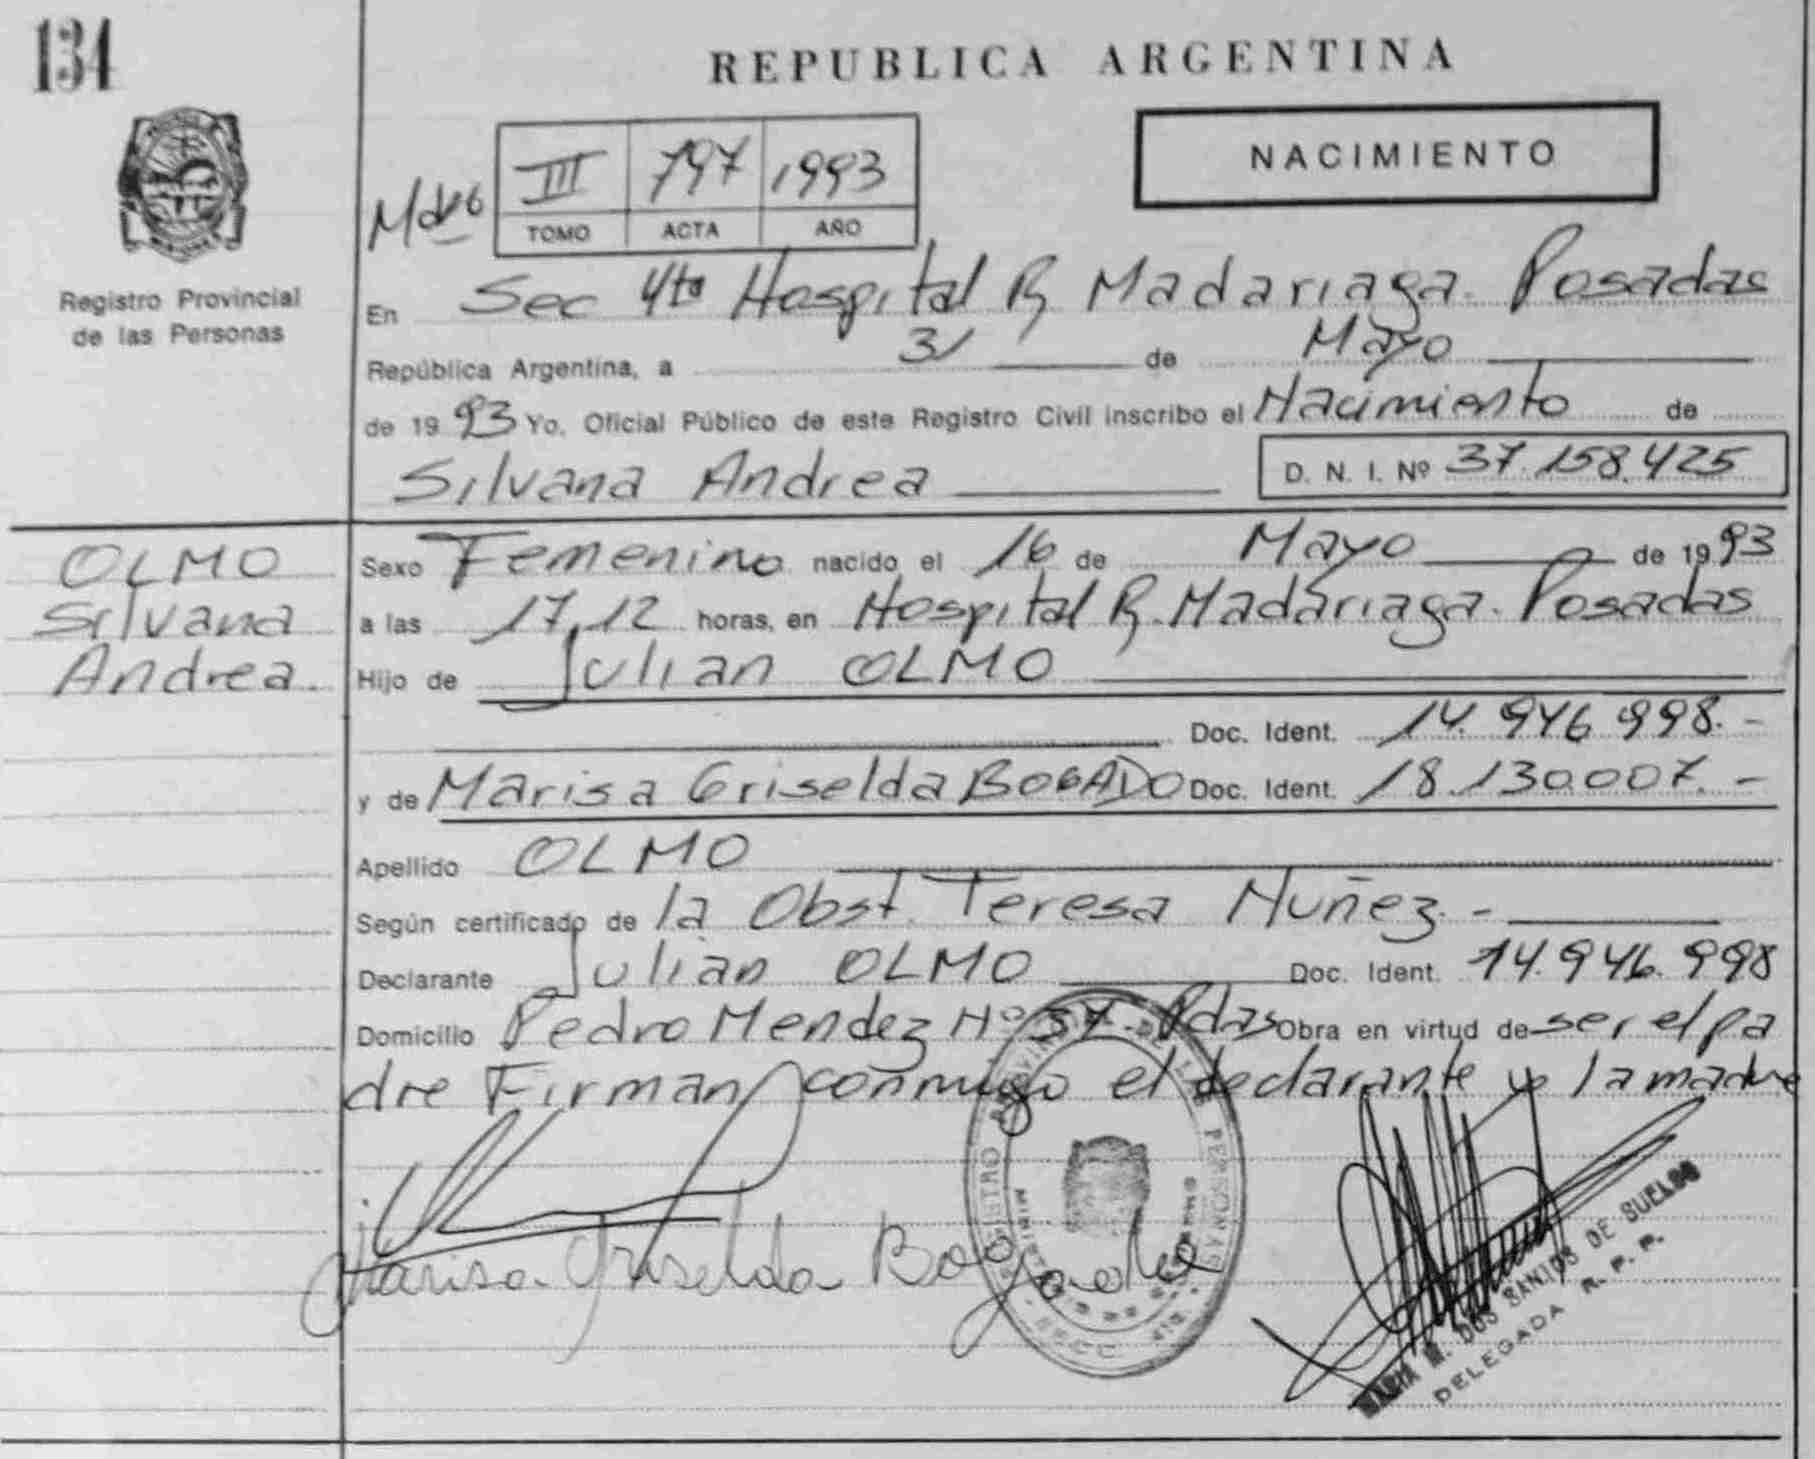 134
REPUBLICA ARGENTINA
NACIMIENTO
III 797 1993
TOMO ACTA AÑO
Registro Provincial
de las Personas
En Sec 4ta Hospital R Madariaga. Posadas
República Argentina, a 31 de Mayo
de 1993 Yo. Oficial Público de este Registro Civil inscribo el Nacimiento de
Silvana Andrea D. N. I. Nº 37.158.425
OLMO
Silvana
Andrea.
Sexo Femenino nacido el 16 de Mayo de 1993
a las 17,12 horas, en Hospital R. Madariaga. Posadas
Hijo de Julian OLMO
Doc. Ident. 14.946.998.-
y de Marisa Griselda BOGADO Doc. Ident. 18.130.007.-
Apellido OLMO
Según certificado de la Obst. Teresa Nuñez.-
Declarante Julian OLMO Doc. Ident. 14.946.998
Domicilio Pedro Mendez Nº 37. Pdas Obra en virtud de ser el pa
dre Firman conmigo el declarante y la madre
Marisa Griselda Bogado
REGISTRO PROVINCIAL DE LAS PERSONAS
DOS SANTOS DE SUELDO
DELEGADA R. P. P.